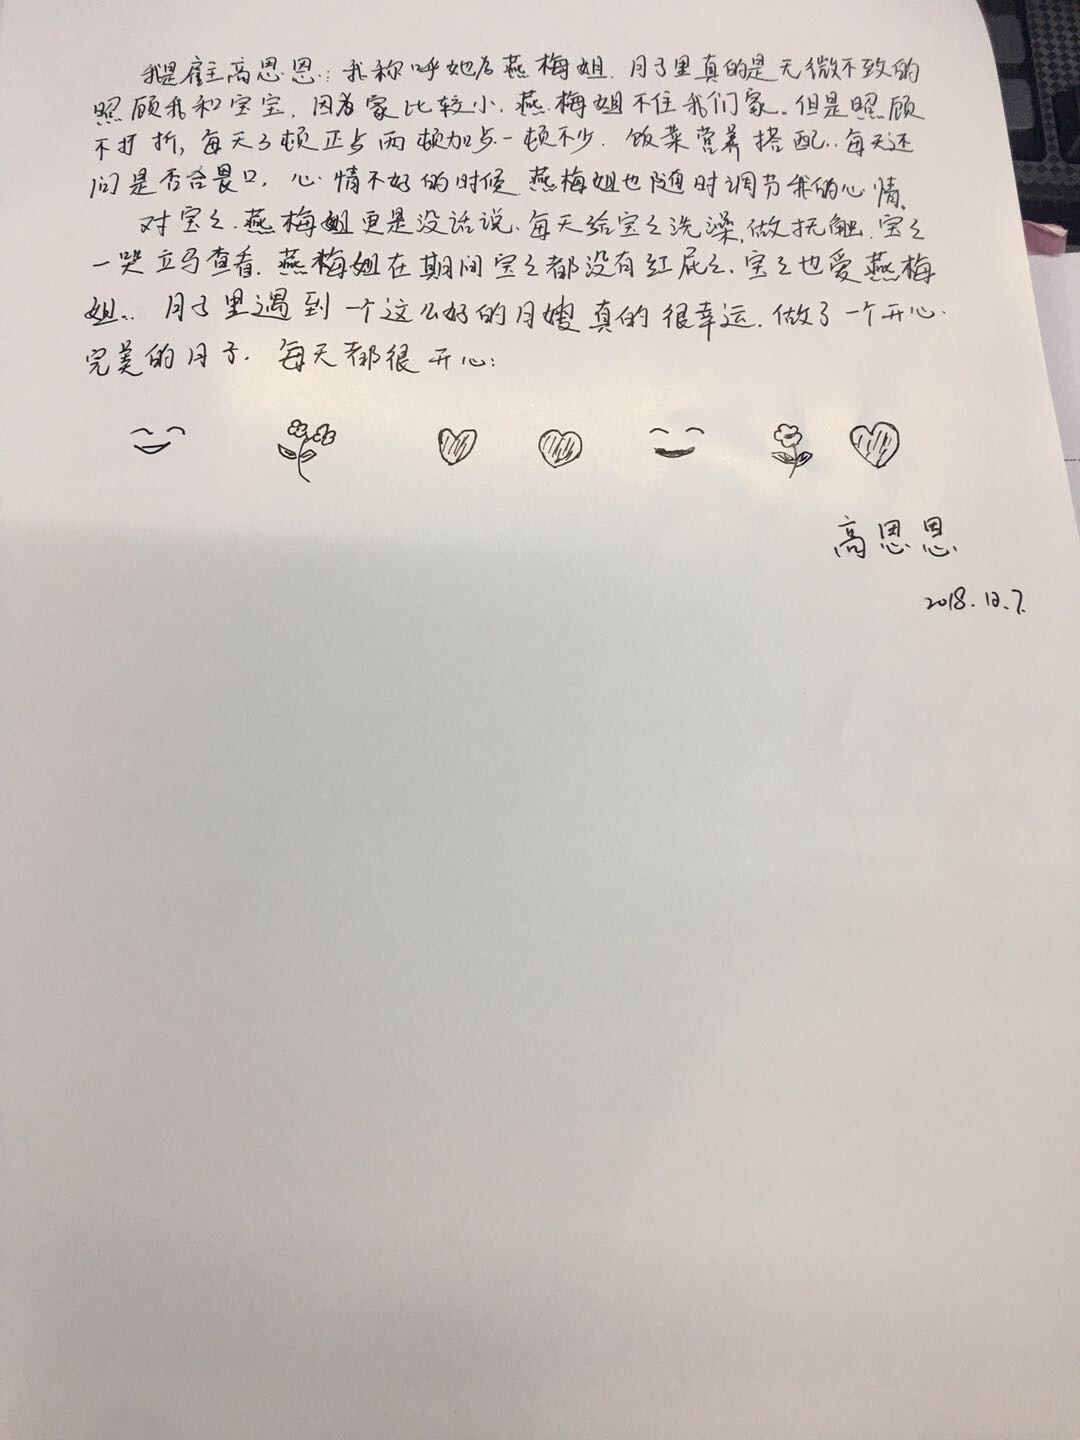 我是雇主高恩恩：我称呼她为燕梅姐．月子里真的是无微不致的
照顾我和宝宝．因为家比较小．燕梅姐不住我们家．但是照顾
不打折，每天3顿正点两顿加点．一顿不少．饭菜营养搭配．．每天还
问是否合畏口．心情不好的时候．燕梅姐也随时调节我的心情．
对宝之．燕梅姐更是没话说．每天给宝之洗澡，做抚触．宝之
一哭立马查看．燕梅姐在期间宝之都没有红屁之．宝之也爱燕梅
姐．．月子里遇到一个这么好的月嫂真的很幸运．做了一个开心．
完美的月子．每天都很开心：
高恩恩
2018.